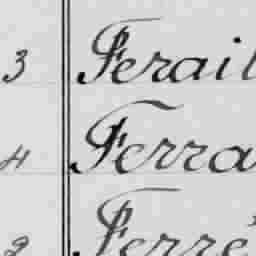 3 Ferail
4 Ferra
2 Ferré